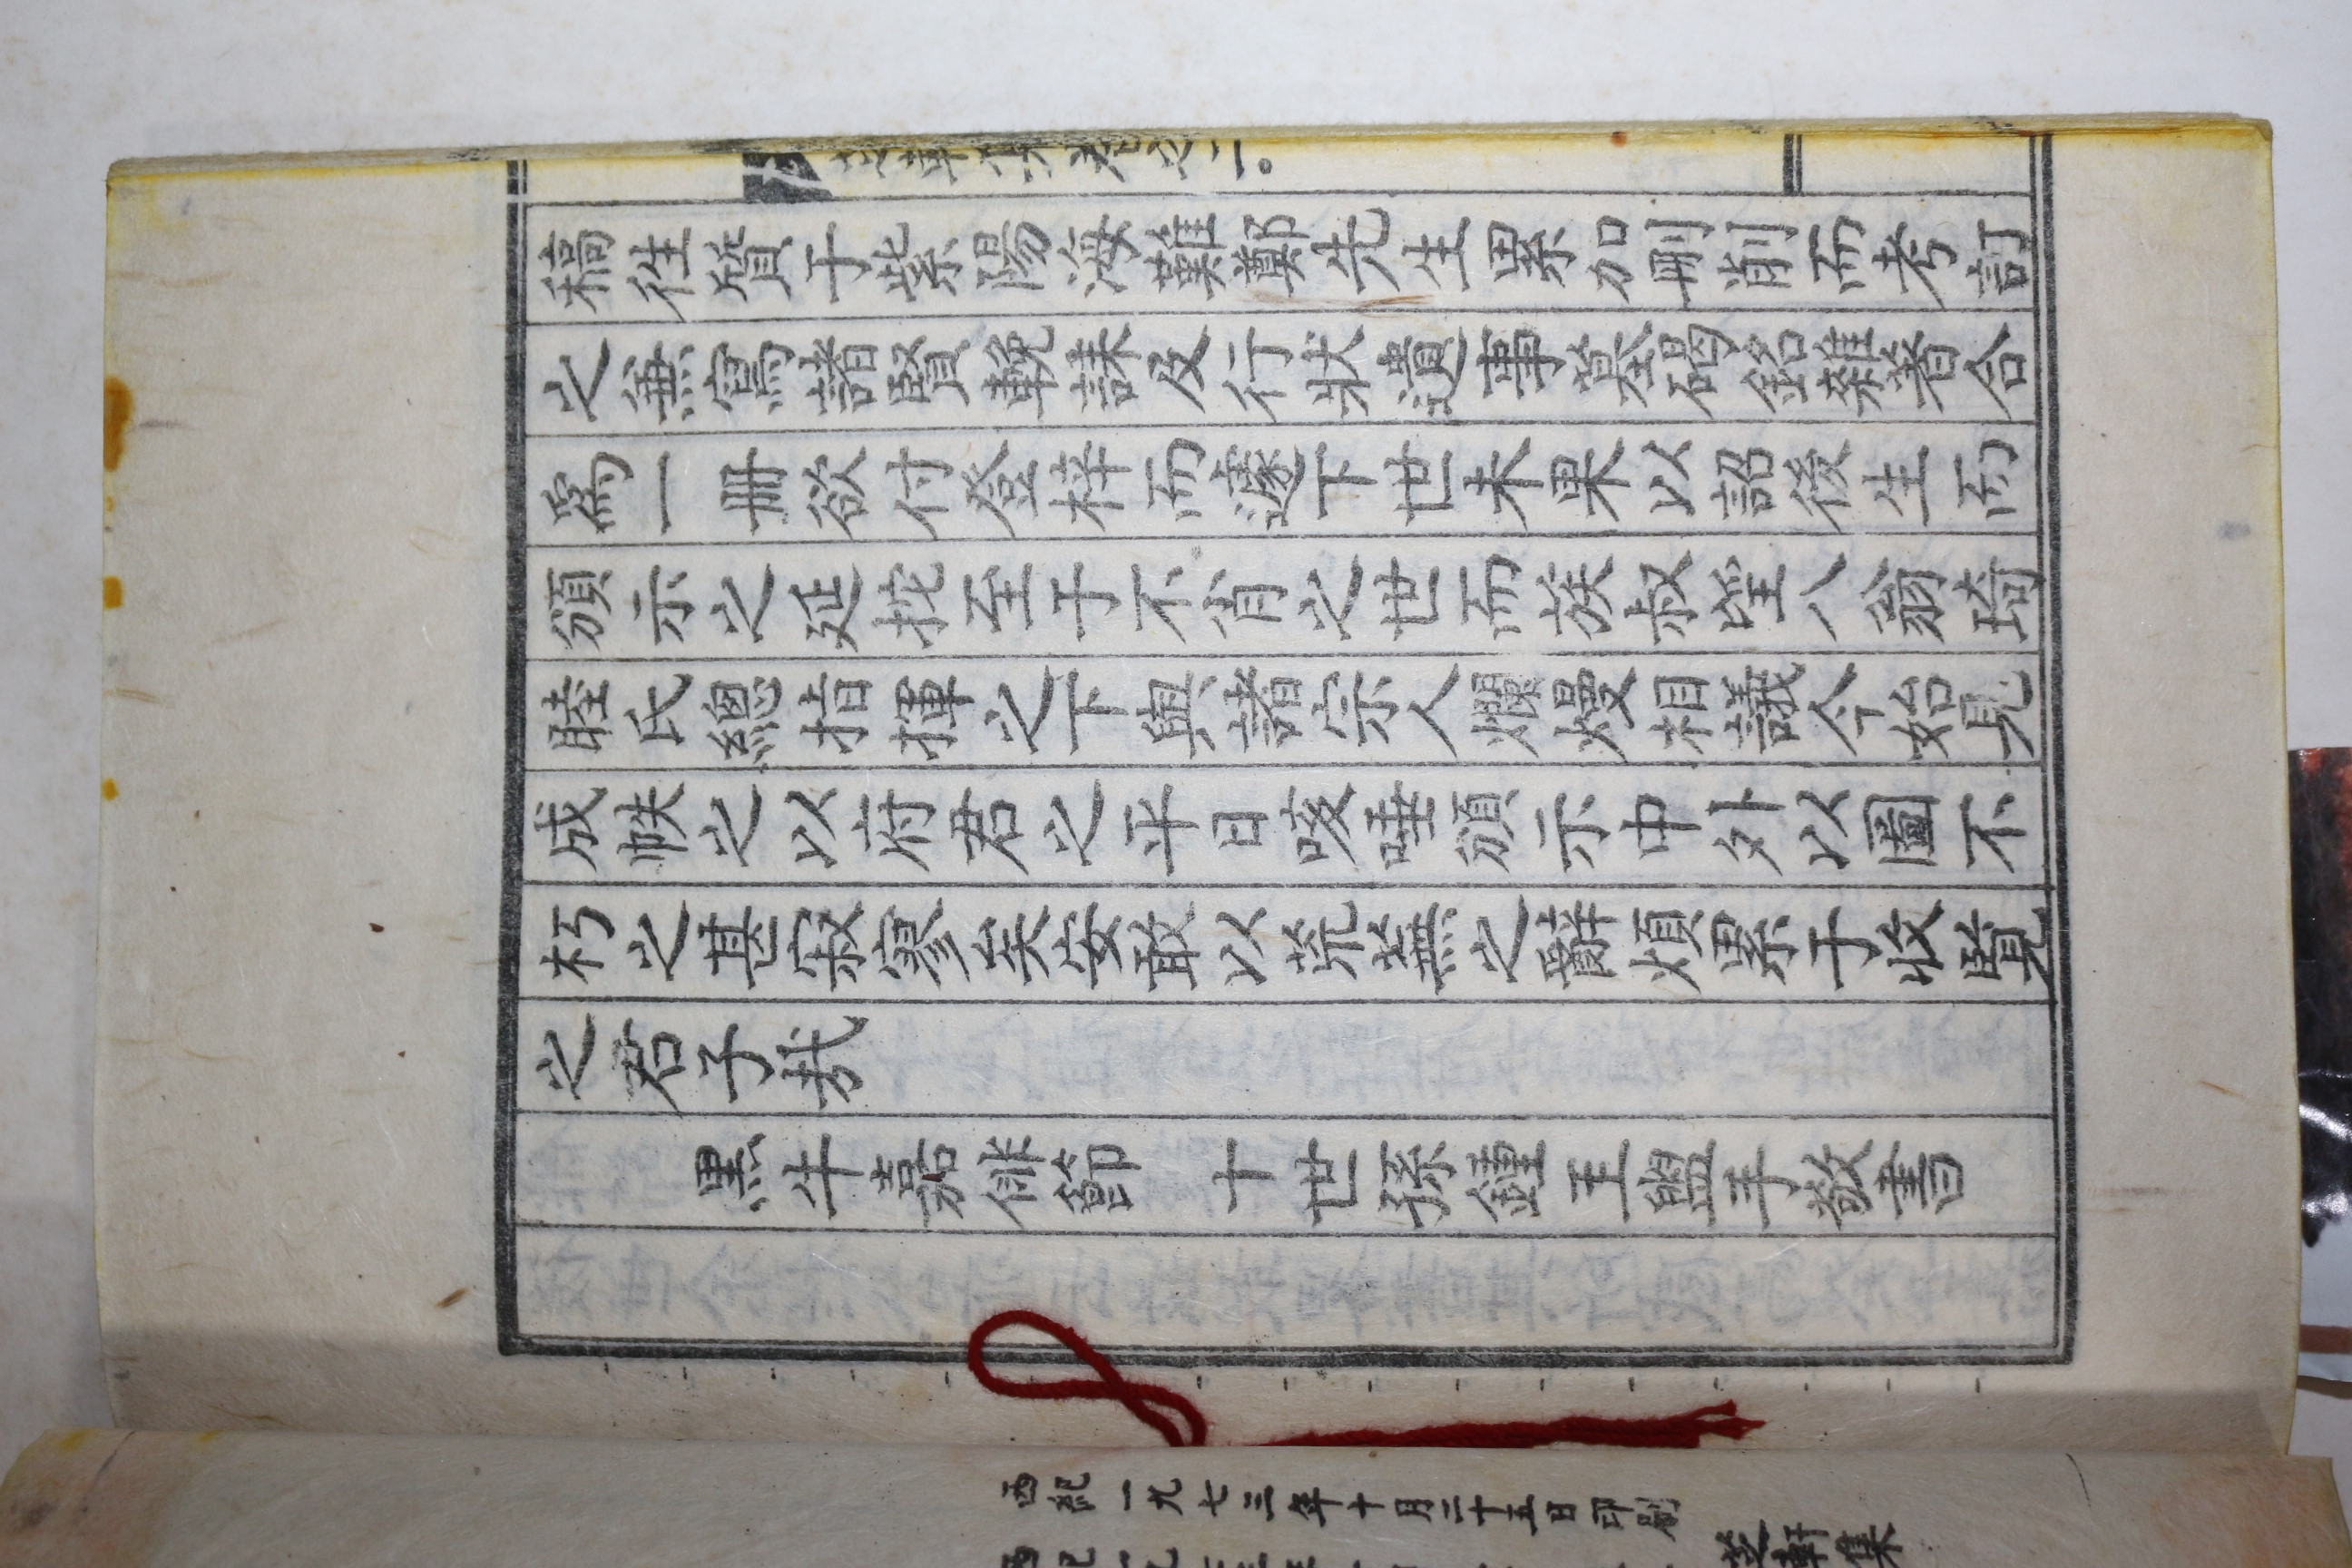 稿徃質于紫陽海難鄭先生累加刪削而考訂
之兼寫諸賢輓誄及行狀遺事墓碣銘雜著合
爲一冊欲付登梓而遽下世未果以詔後生而
頒示之延拕至于不肖之世而族叔望八翁琦
睦氏總指揮之下與諸宗人爛熳相議今始見
成帙之以府君之平日咳唾頒示中外以圖不
朽之甚寂寥矣安敢以荒蕪之辭煩累于收覧
之君子哉
黒牛嘉俳節 十世孫鍾玉盥手敬書
卷之二
西紀一九七三年十月二十五日印刷
芝軒集